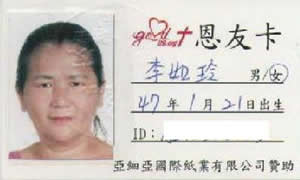 恩友卡
李如玲 男/女
47年1月21日出生
ID:
亞細亞國際紙業有限公司贊助